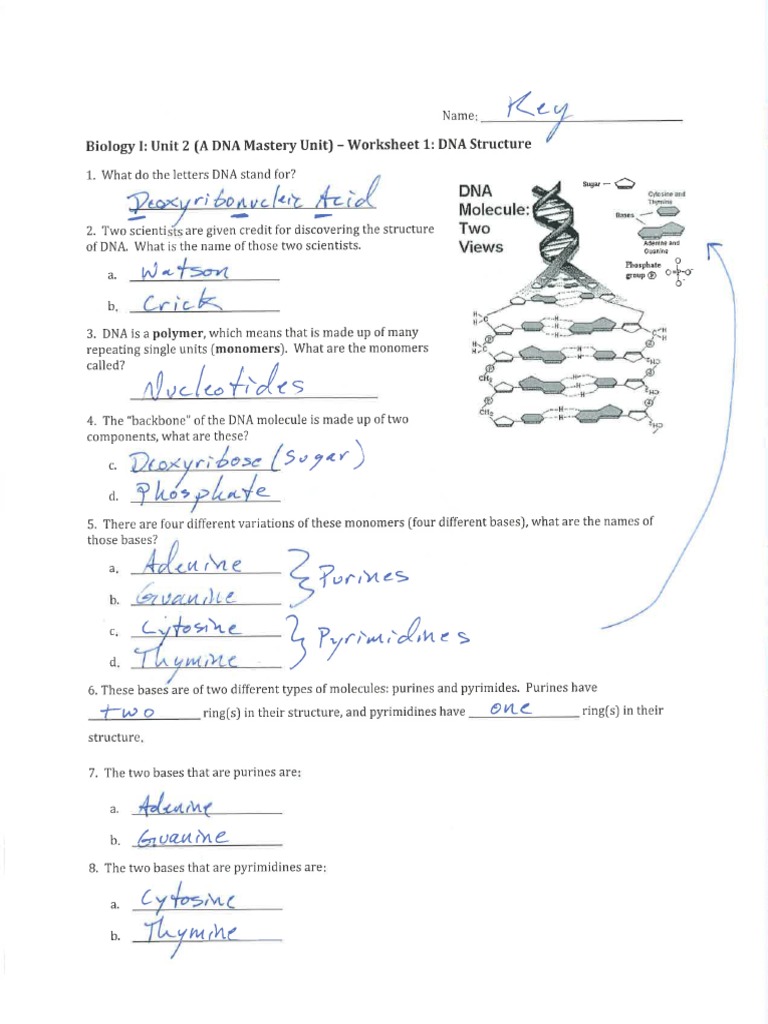 Name: Key
Biology I: Unit 2 (A DNA Mastery Unit) – Worksheet 1: DNA Structure
1. What do the letters DNA stand for?
Deoxyribonucleic Acid
2. Two scientists are given credit for discovering the structure
of DNA. What is the name of those two scientists.
a. Watson
b. Crick
3. DNA is a polymer, which means that is made up of many
repeating single units (monomers). What are the monomers
called?
Nucleotides
4. The "backbone" of the DNA molecule is made up of two
components, what are these?
c. Deoxyribose (Sugar)
d. Phosphate
DNA
Molecule:
Two
Views
Sugar
Cytosine and
Thymine
Bases
Adenine and
Guanine
Phosphate
group P
5. There are four different variations of these monomers (four different bases), what are the names of
those bases?
a. Adenine
b. Guanine
Purines
c. Cytosine
d. Thymine
Pyrimidines
6. These bases are of two different types of molecules: purines and pyrimides. Purines have
two ring(s) in their structure, and pyrimidines have one ring(s) in their
structure.
7. The two bases that are purines are:
a. Adenine
b. Guanine
8. The two bases that are pyrimidines are:
a. Cytosine
b. Thymine